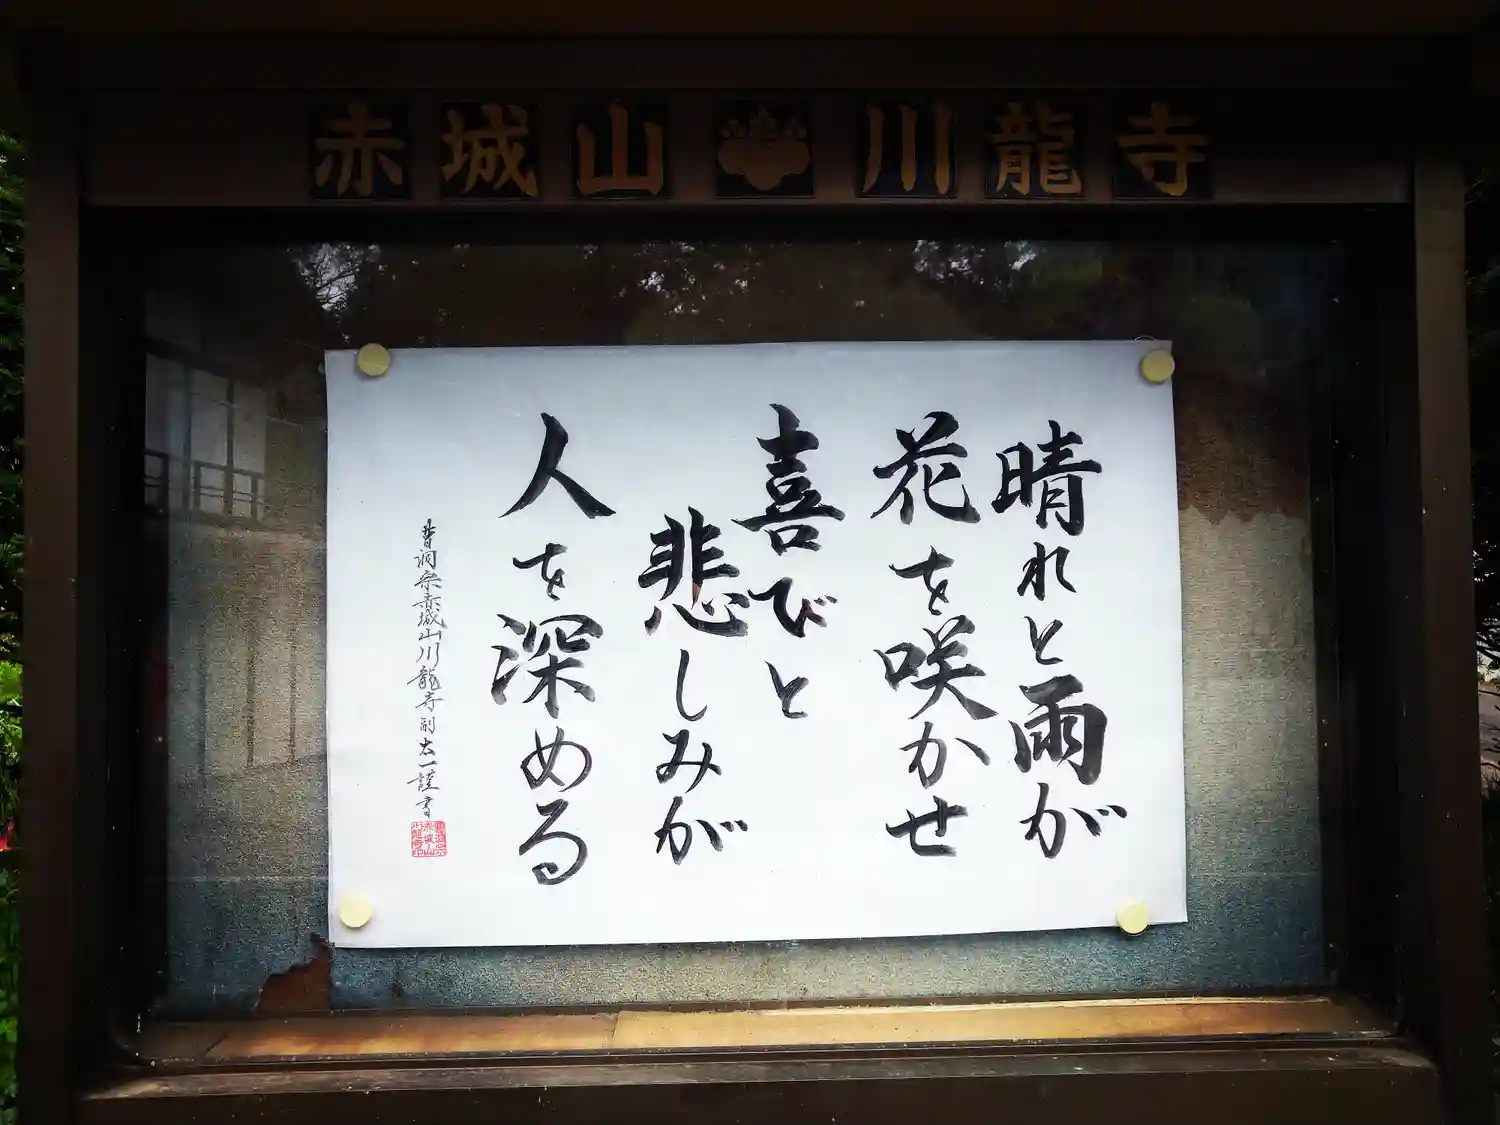 赤城山 川龍寺
晴れと雨が
花を咲かせ
喜びと
悲しみが
人を深める
曹洞宗赤城山川龍寺副太一謹書